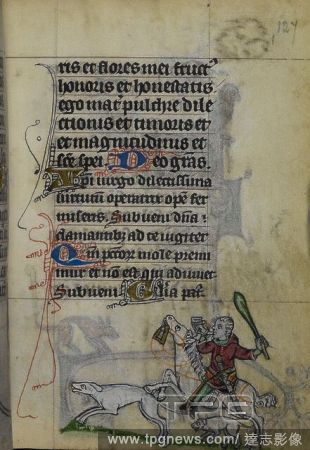 124
tis et flores mei fruct⁹
honoris et honestatis
ego mat̄ pulchre dile
ctionis et timoris et
et magnitudinis et
sc̄e spei. Deo gras.
virgo
operatur opē fer
miseris. Subveni dn̄a
clamantib; ad te iugiter
Q m pctōr mole premi
mur et nō est qui adiuvet
Subveni Glīa pat̄.
TPG
www.tpgnews.com/ 達志影像